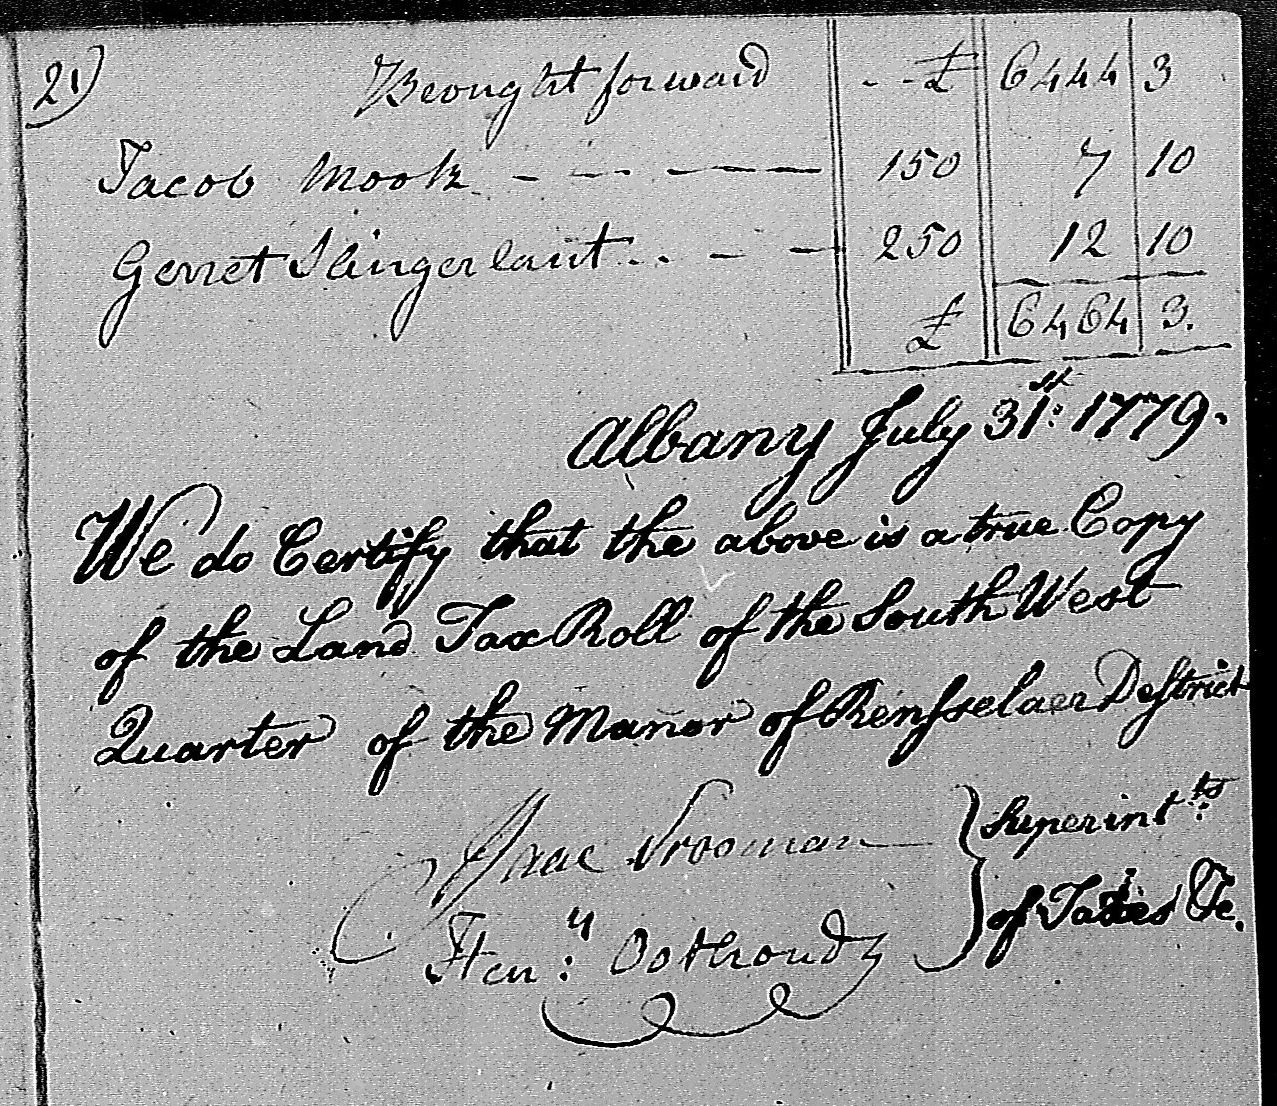 21) Brought forward - - £ 6444 3
Jacob Mook - - - - - 150 7 10
Gerret Slingerlant . . - - 250 12 10
£ 6464 3.
Albany July 31st: 1779.
We do Certify that the above is a true Copy
of the Land Tax Roll of the South West
Quarter of the Manor of Rensselaer District
Isaac Vrooman } Superintts:
Heny: Oothoudt } of Taxes &c.